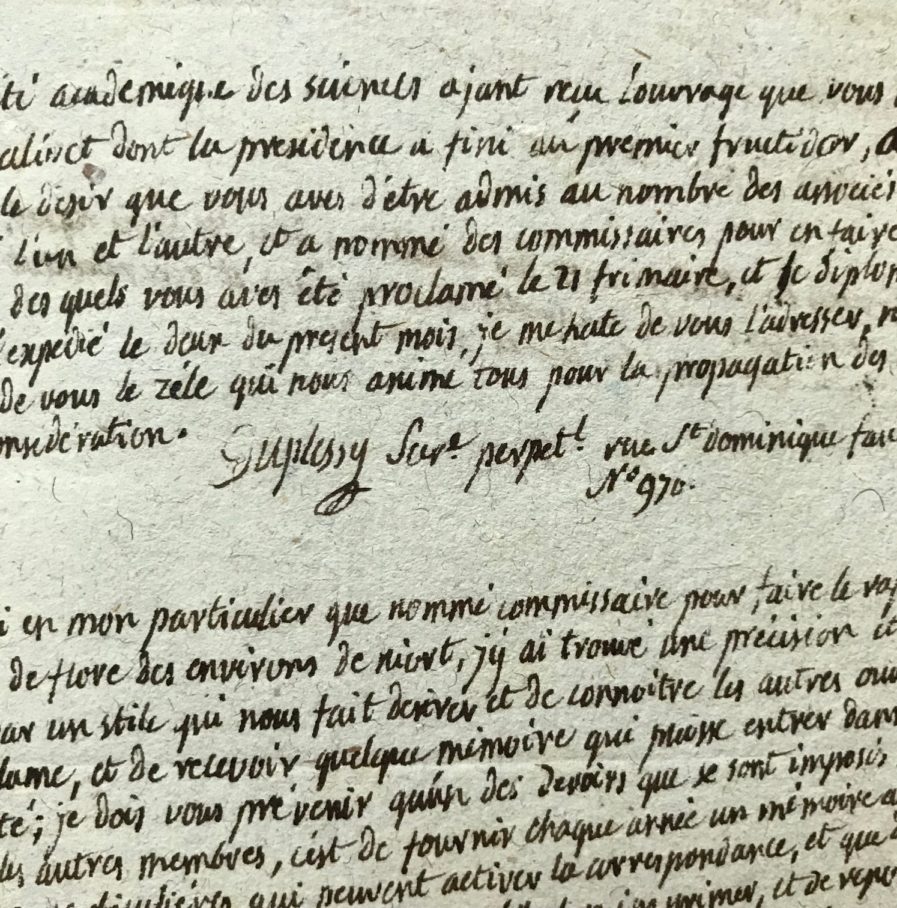 té académique des sciences ajant reçu l'ouvrage que vous
alisset dont la presidence a fini au premier fructidor, a
le desir que vous aves d'être admis au nombre des associés
l'un et l'autre, et a nommé des commissaires pour en faire
des quels vous aves été proclamé le 21 frimaire, et le diplo
expedié le deux du present mois, je me hate de vous l'adresser,
de vous le zéle qui nous anime tous pour la propagation des
onsidération.
Duplessy Secr.e perpet.l rue St dominique fau
No 970.
i en mon particulier que nommé commissaire pour faire le rap
de flore des environs de niort, j'y ai trouvé une précision et
ar un stile qui nous fait desirer et de connoitre les autres ou
lume, et de recevoir quelque mémoire qui puisse entrer dans
té; je dois vous prévenir qu'un des devoirs que se sont imposés
les autres membres, c'est de fournir chaque année un mémoire a
qui peuvent activer la correspondance, et que
imprimer, et de repe